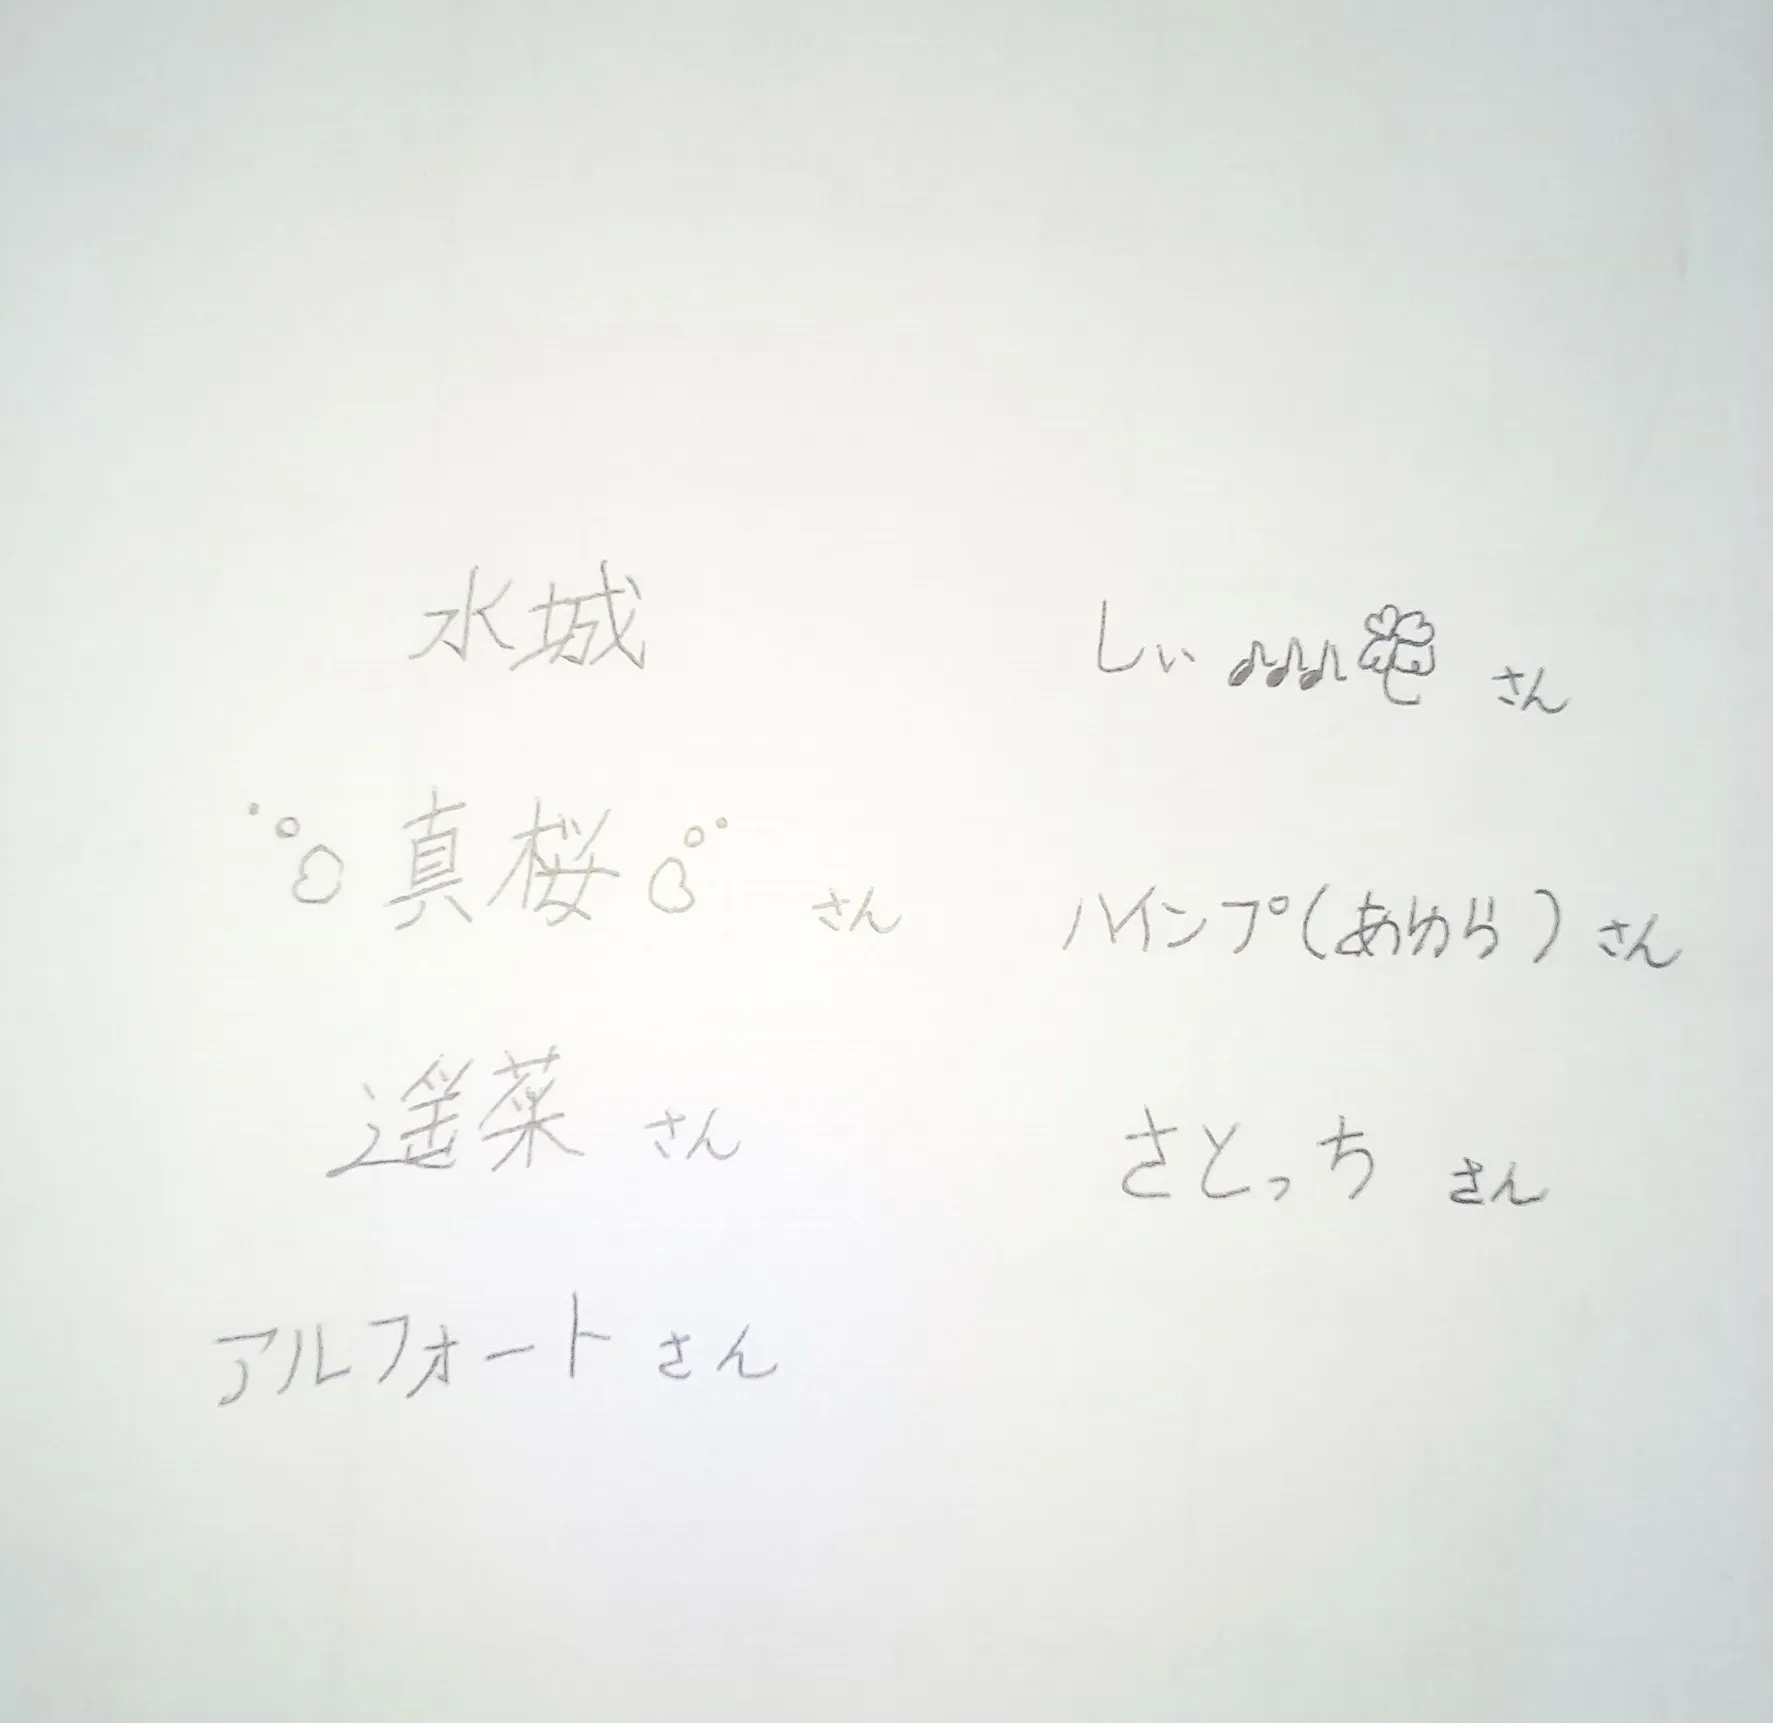 水城
真桜 さん
遥菜 さん
アルフォート さん
しぃ♪♪♪🍀 さん
ハインプ(あゆら) さん
さとっち さん